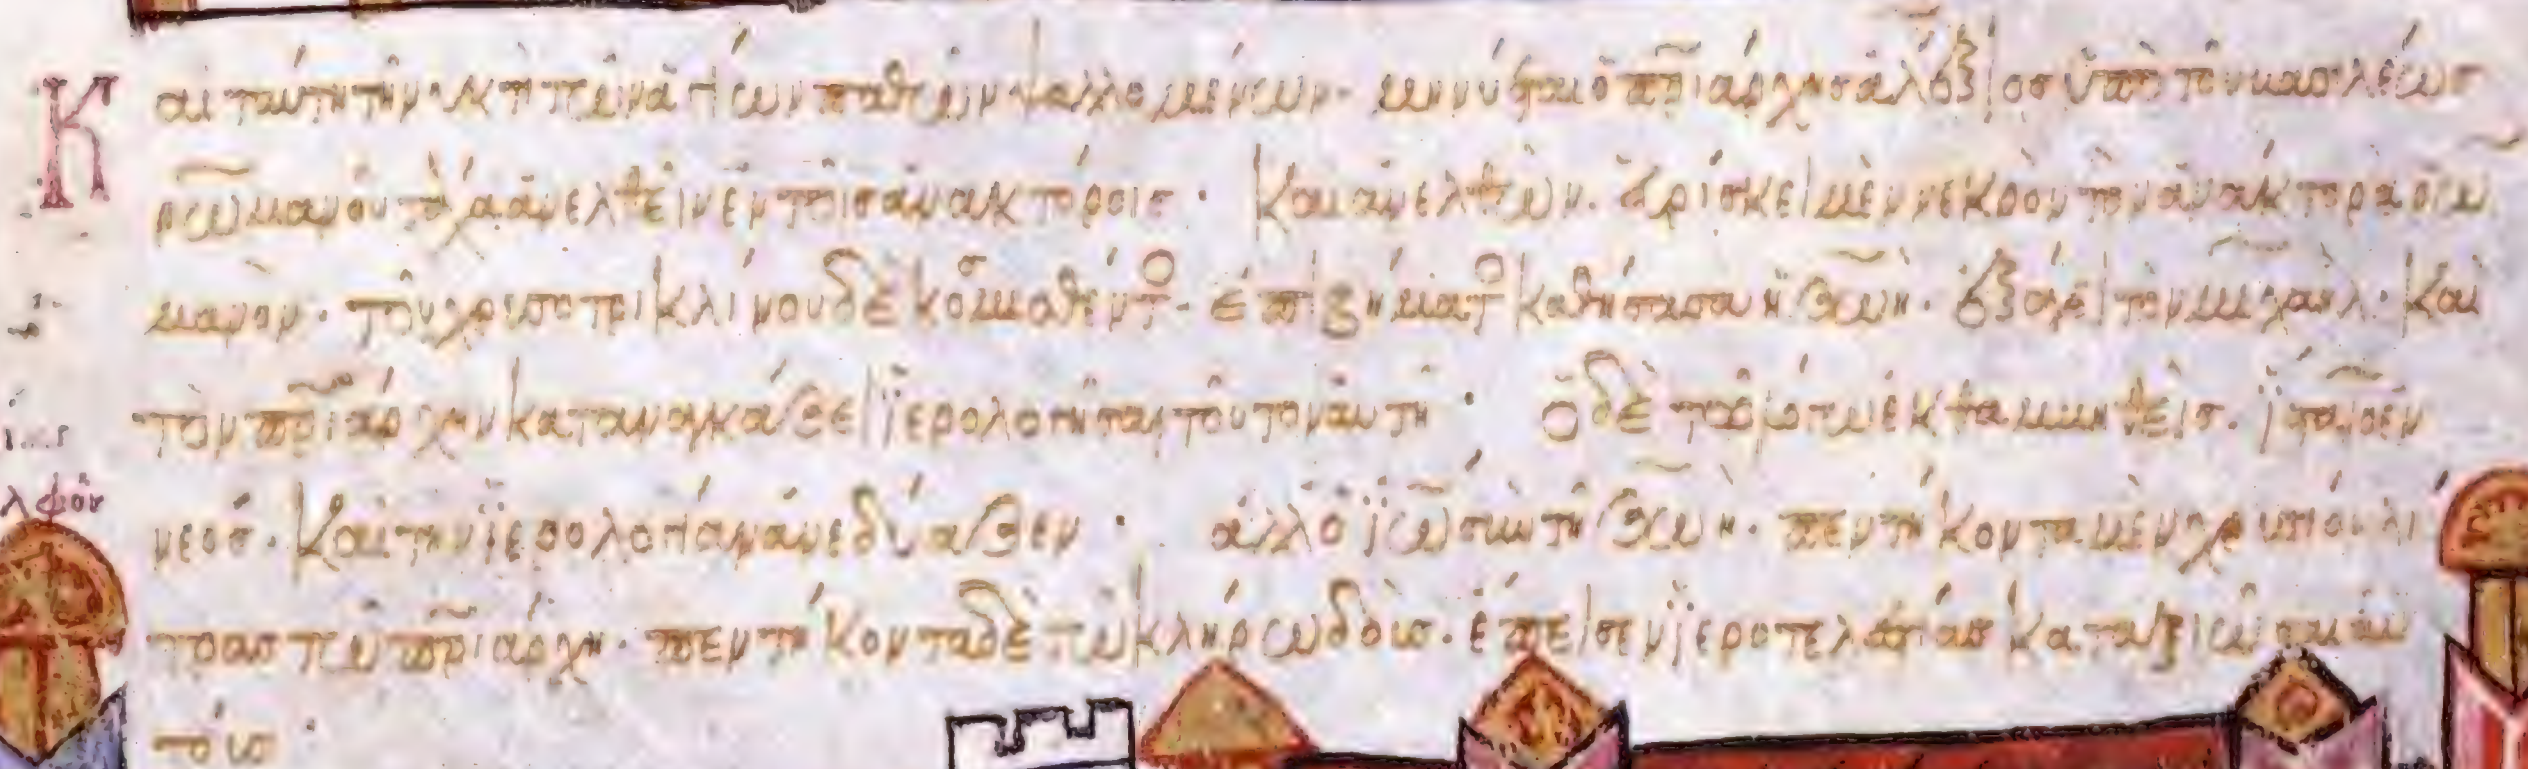 Καὶ ταύτῃ τῇ νυκτὶ τῶν ἁγίων παθῶν ψαλλομένων· μηνύεται ὁ πριάρχης ἀλέξιος ὑπὸ τοῦ βασιλέως
ρωμανοῦ τάχα ἀνελθεῖν ἐν τοῖς ἀνακτόροις· καὶ ἀνελθών. εὑρίσκει μὲν νεκρὸν τὸν ἄνακτορα ρω
μανόν· τοῦ χρυσοτρικλίνου δὲ κοσμηθέντος· ἐπὶ βήματος καθίσασα ἡ ζωὴ· ἐξάγει τὸν μιχαὴλ· καὶ
τὸν πριάρχην καταναγκάζει ἱερολογῆσαι τοῦτον αὐτῇ· ὁ δὲ τῷ ῥηθέντι ἐκθαμβηθεὶς. ἵστατο ἐν
νεός. καὶ τὴν ἱερολογίαν ἀνεδύαζεν· ἀλλ' ὁ ἰω σὺν τῇ ζωῇ· πεντήκοντα μὲν χρυσίου λί
τρας τῷ πριάρχῃ· πεντήκοντα δὲ τῷ κλήρῳ δόντες· ἔπεισεν ἱεροτελεστίας καταξιῶσαι αὐ
τούς·
λφοῦ